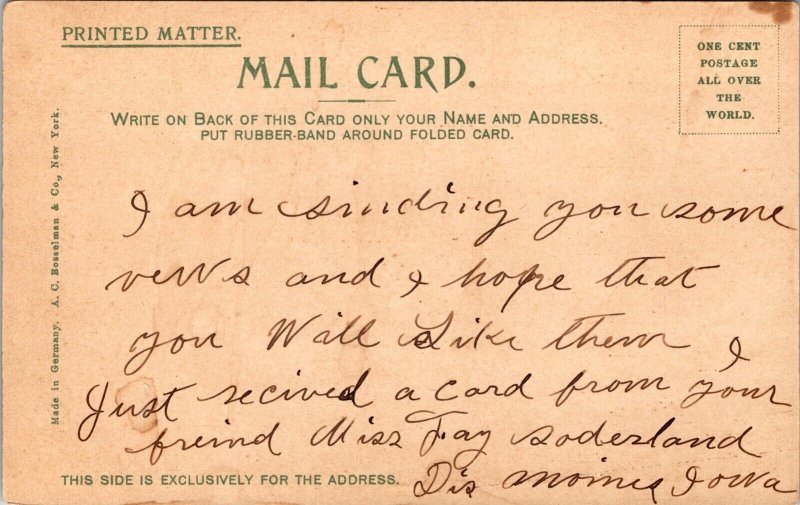 PRINTED MATTER.
MAIL CARD.
ONE CENT
POSTAGE
ALL OVER
THE
WORLD.
WRITE ON BACK OF THIS CARD ONLY YOUR NAME AND ADDRESS.
PUT RUBBER-BAND AROUND FOLDED CARD.
Made in Germany. A. C. Bosselman & Co., New York.
I am sinding you some
vews and I hope that
you Will Like them I
Just recived a card from your
freind Miss Fay Soderland
Dis moines Iowa
THIS SIDE IS EXCLUSIVELY FOR THE ADDRESS.